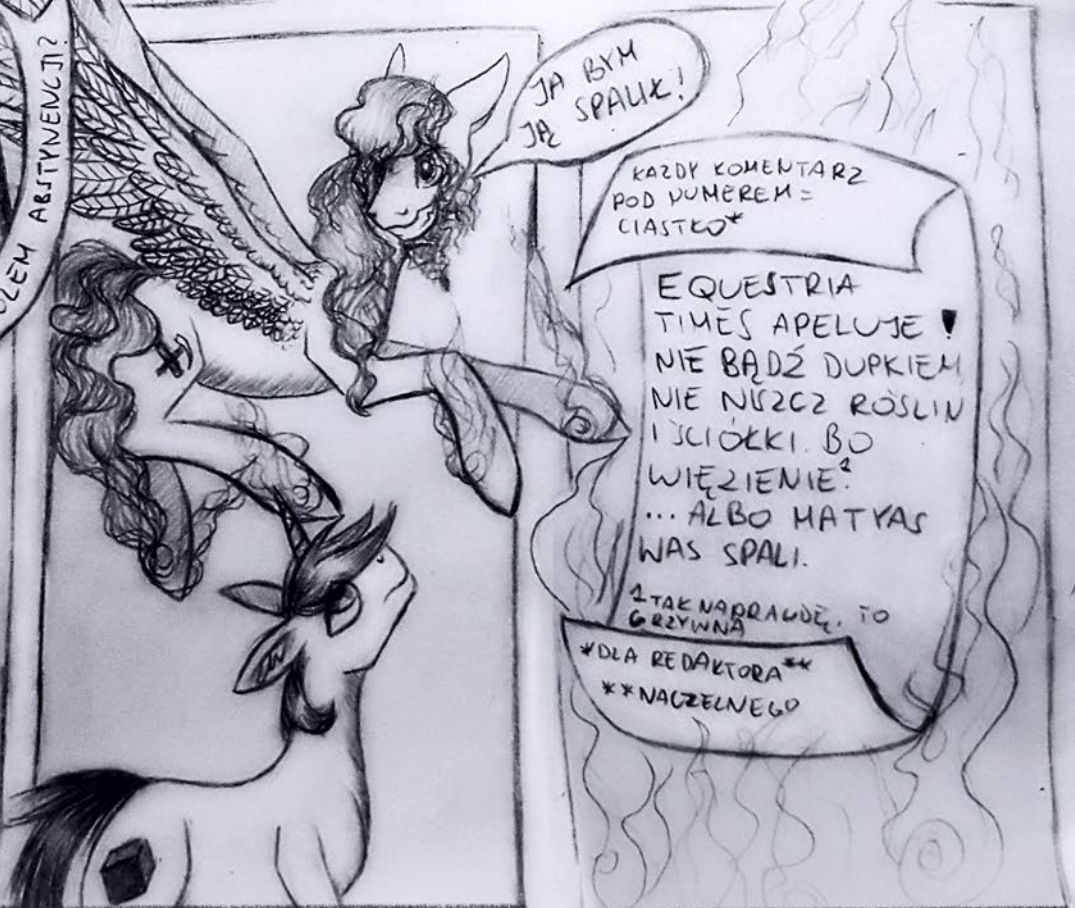 ABSTYNENCJI?
JA BYM
JĄ SPALIŁ!
KAZDY KOMENTARZ
POD NUMEREM =
CIASTKO*
EQUESTRIA
TIMES APELUJE!
NIE BĄDŹ DUPKIEM
NIE NISZCZ ROŚLIN
I ŚCIÓŁKI. BO
WIĘZIENIE.¹
... ALBO MATYAS
WAS SPALI.
¹ TAK NAPRAWDĘ, TO
GRZYWNA
*DLA REDAKTORA**
**NACZELNEGO